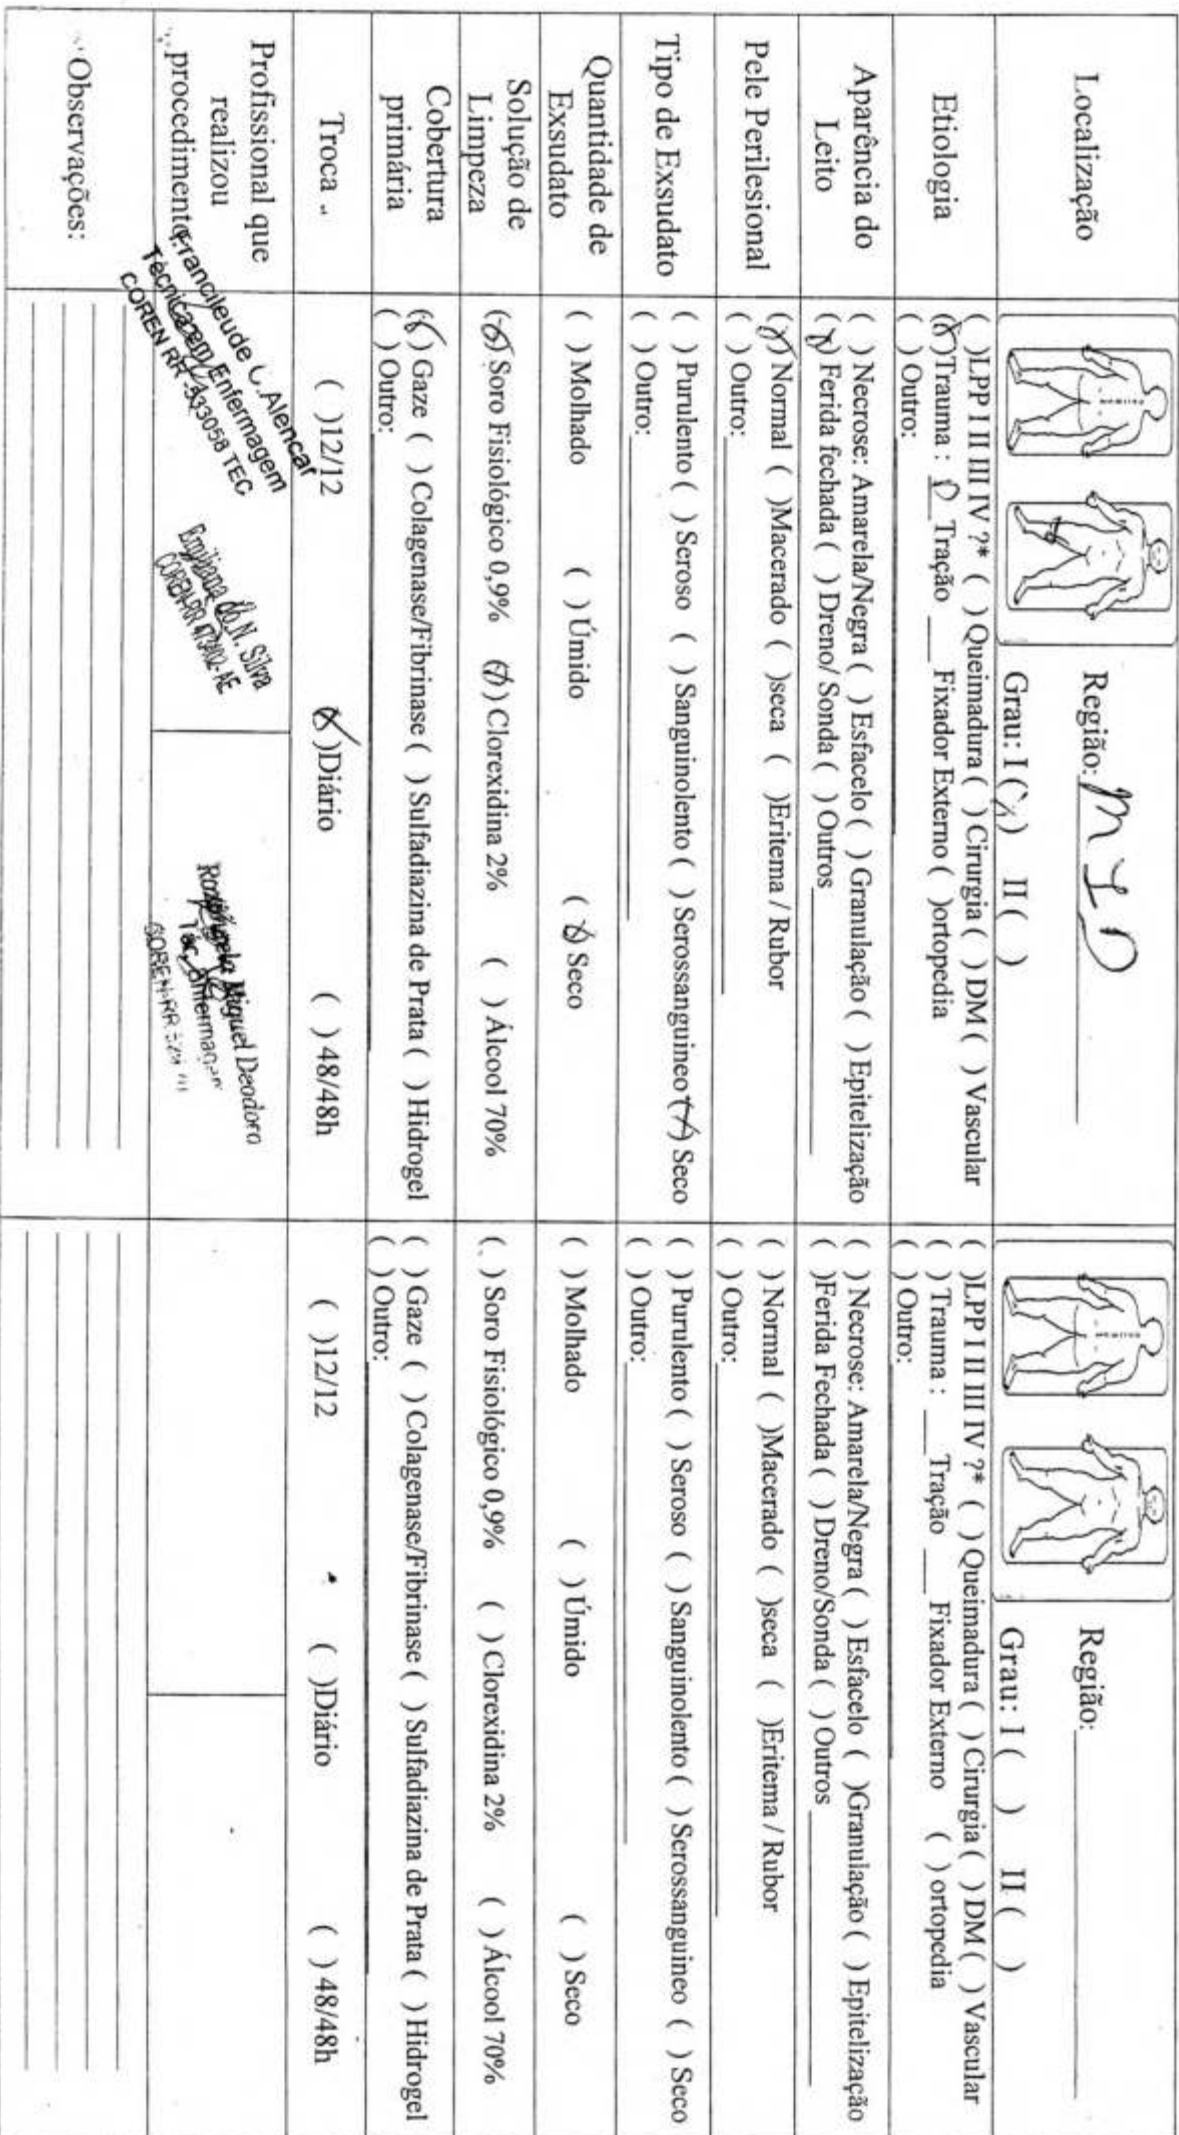 Localização
Região: MID
Grau: I (X) II ( )
Região:
Grau: I ( ) II ( )
Etiologia
( )LPP I II III IV ?* ( ) Queimadura ( ) Cirurgia ( ) DM ( ) Vascular
(X)Trauma : D Tração ___ Fixador Externo ( )ortopedia
( ) Outro:
( )LPP I II III IV ?* ( ) Queimadura ( ) Cirurgia ( ) DM ( ) Vascular
( ) Trauma : ___ Tração ___ Fixador Externo ( ) ortopedia
( ) Outro:
Aparência do
Leito
( ) Necrose: Amarela/Negra ( ) Esfacelo ( ) Granulação ( ) Epitelização
(X) Ferida fechada ( ) Dreno/ Sonda ( ) Outros
( ) Necrose: Amarela/Negra ( ) Esfacelo ( )Granulação ( ) Epitelização
( )Ferida Fechada ( ) Dreno/Sonda ( ) Outros
Pele Perilesional
(X) Normal ( )Macerado ( )seca ( )Eritema / Rubor
( ) Outro:
( ) Normal ( )Macerado ( )seca ( )Eritema / Rubor
( ) Outro:
Tipo de Exsudato
( ) Purulento ( ) Seroso ( ) Sanguinolento ( ) Serossanguineo (X) Seco
( ) Outro:
( ) Purulento ( ) Seroso ( ) Sanguinolento ( ) Serossanguineo ( ) Seco
( ) Outro:
Quantidade de
Exsudato
( ) Molhado ( ) Úmido (X) Seco
( ) Molhado ( ) Úmido ( ) Seco
Solução de
Limpeza
(X) Soro Fisiológico 0,9% (X) Clorexidina 2% ( ) Álcool 70%
( ) Soro Fisiológico 0,9% ( ) Clorexidina 2% ( ) Álcool 70%
Cobertura
primária
(X) Gaze ( ) Colagenase/Fibrinase ( ) Sulfadiazina de Prata ( ) Hidrogel
( ) Outro:
( ) Gaze ( ) Colagenase/Fibrinase ( ) Sulfadiazina de Prata ( ) Hidrogel
( ) Outro:
Troca
( )12/12 (X)Diário ( ) 48/48h
( )12/12 ( )Diário ( ) 48/48h
Profissional que
realizou
procedimento:
Francileude C. Alencar
Técnica em Enfermagem
COREN RR -533058 TEC
Emiliana do N. Silva
COREN-RR
Miguel Deodoro
COREN-RR
Observações: